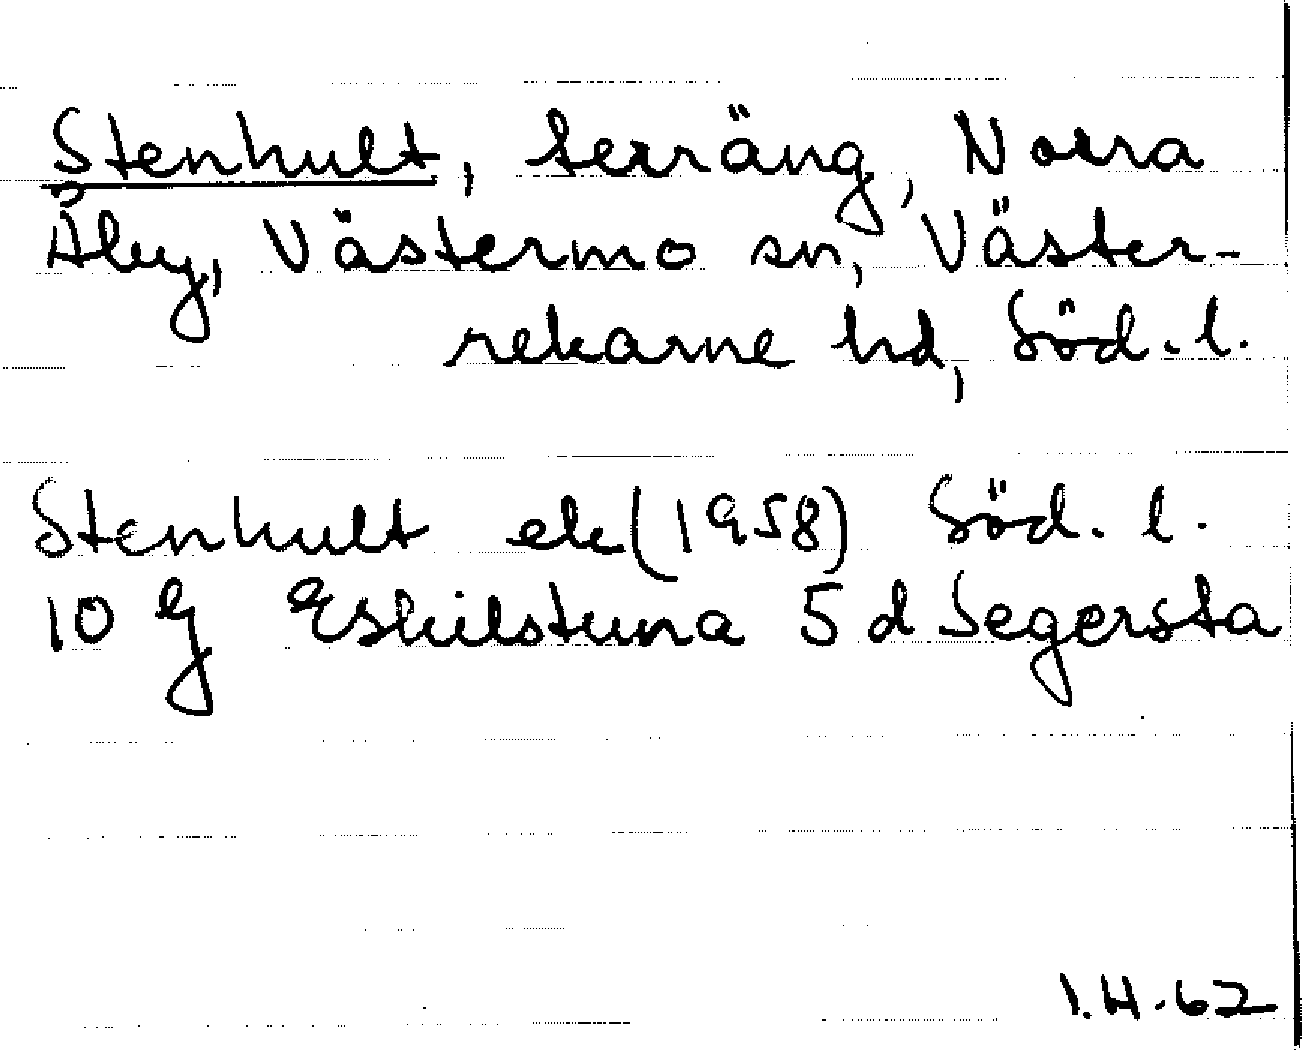 Stenhult, terräng, Norra
Åby, Västermo sn, Väster-
rekarne hd, Söd. l.
Stenhult ek (1958) Söd. l.
10 G Eskilstuna 5 d Segersta
I.H.62